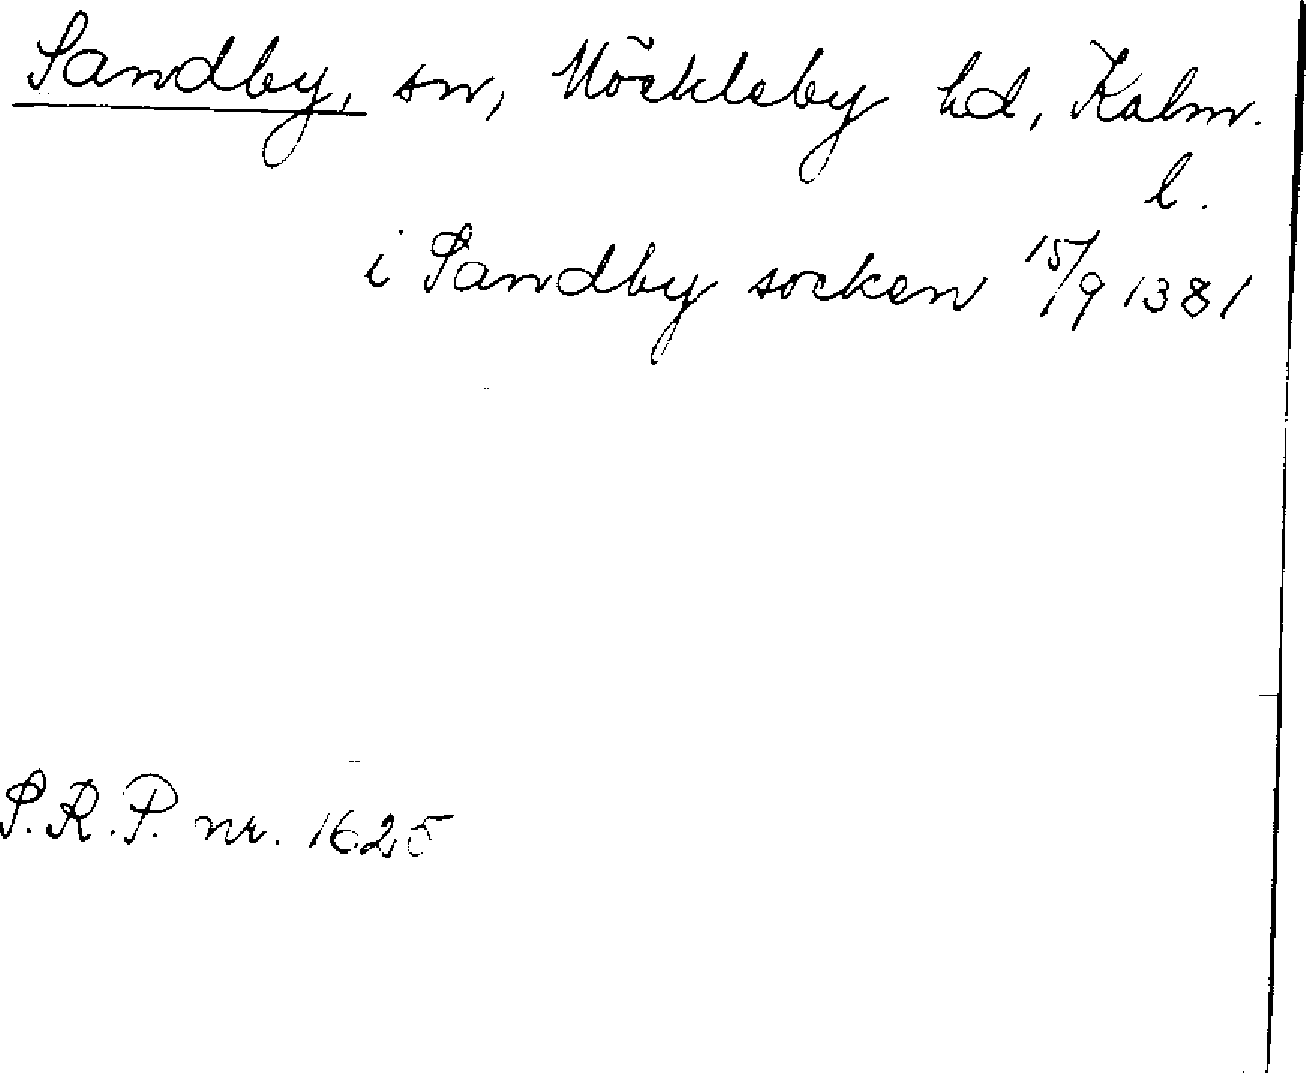 Sandby, sn, Möckleby hd, Kalm.
l.
i Sandby socken 15/9 1381
S.R.P. nr. 1625